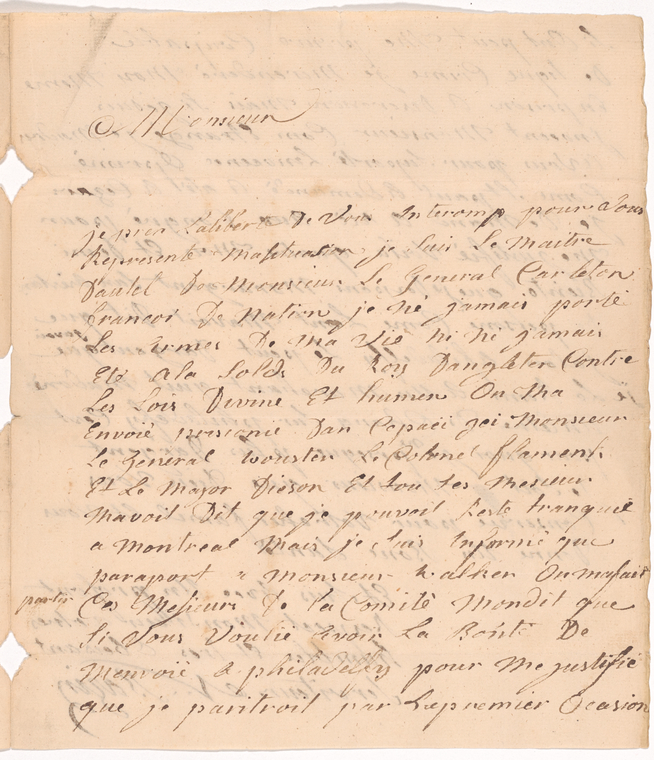 Monsieur
je prie Laliberté De vous Interomp pour Vous
Representé Masituation je Suis Le Maitre
Dautel De Monsieur Le General Carleton
francor De Nation je né jamais porté
Les armes De ma vie ni né jamais
Eté ala Solde Du Roy Dangleter Contre
Les Lois Divine Et humen On Ma
Envoié prisonié Dan Cepaii jci Monsieur
Le General wouster Le Colonel flament
Et Le Major Dieson Et tou Ses Mesieur
Mavoit Dit que je pouvoit Resté tranquil
a Montreal Mais je Suis Informé que
paraport a Monsieur walker On mafait
partir Ces Mesieurs De la Comité Mondit que
Si Vous Voulié avoir La Bonté De
Menvoié a philadelfy pour Me justifié
que je partiroit par Lepremier Ocasion